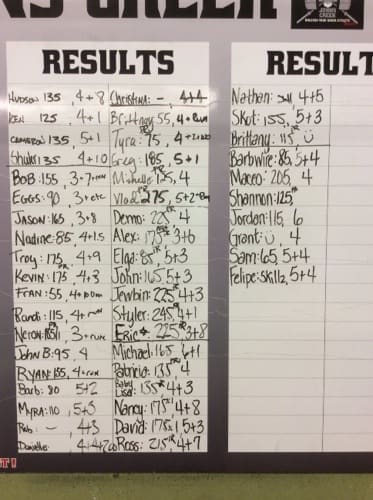 CREEK
JERRY CREEK
RESULTS
Hudson 135, 4+8
KEN 125, 4+1
CAMERON 135, 5+1
Shuki 135, 4+10
BOB: 155, 3+7
EGGS: 90, 3+etc
JASON: 165, 3+8
Nadine: 85, 4+1.5
Troy: 175, 4+9
KEVIN: 175, 4+3
FRAN: 55, 4+
Randi: 115, 4+run
3+run
JOHN B: 95, 4
RYAN: 155, 4+run
Barb: 80 5+2
MYRA: 110, 5+3
Rob - 4+3
Danielle
Christina: -, 4+4
Brittney 55, 4+Run
Tyra: 75, 4+2+
Greg: 185, 5+1
Michelle 4
Vlad 275, 5+2
Demo: 225 4
Alex: 175 3+6
Elga: 85 5+3
John: 165 5+3
Jewbin: 225 4+3
Styler: 245 4+1
Eric 225 3+8
Michael: 165, 6+1
Patricia: 135 4
Baby 135 4+3
Nancy: 175 4+8
David: 175 5+3
Ross: 215 4+7
RESULT
Nathan: 4+5
Skot: 155, 5+3
Brittany: 115
Barbwire: 85, 5+4
Maceo: 205, 4
Shannon: 125
Jordan: 115, 6
Grant: 4
Sam: 65, 5+4
Felipe: skillz, 5+4
T!